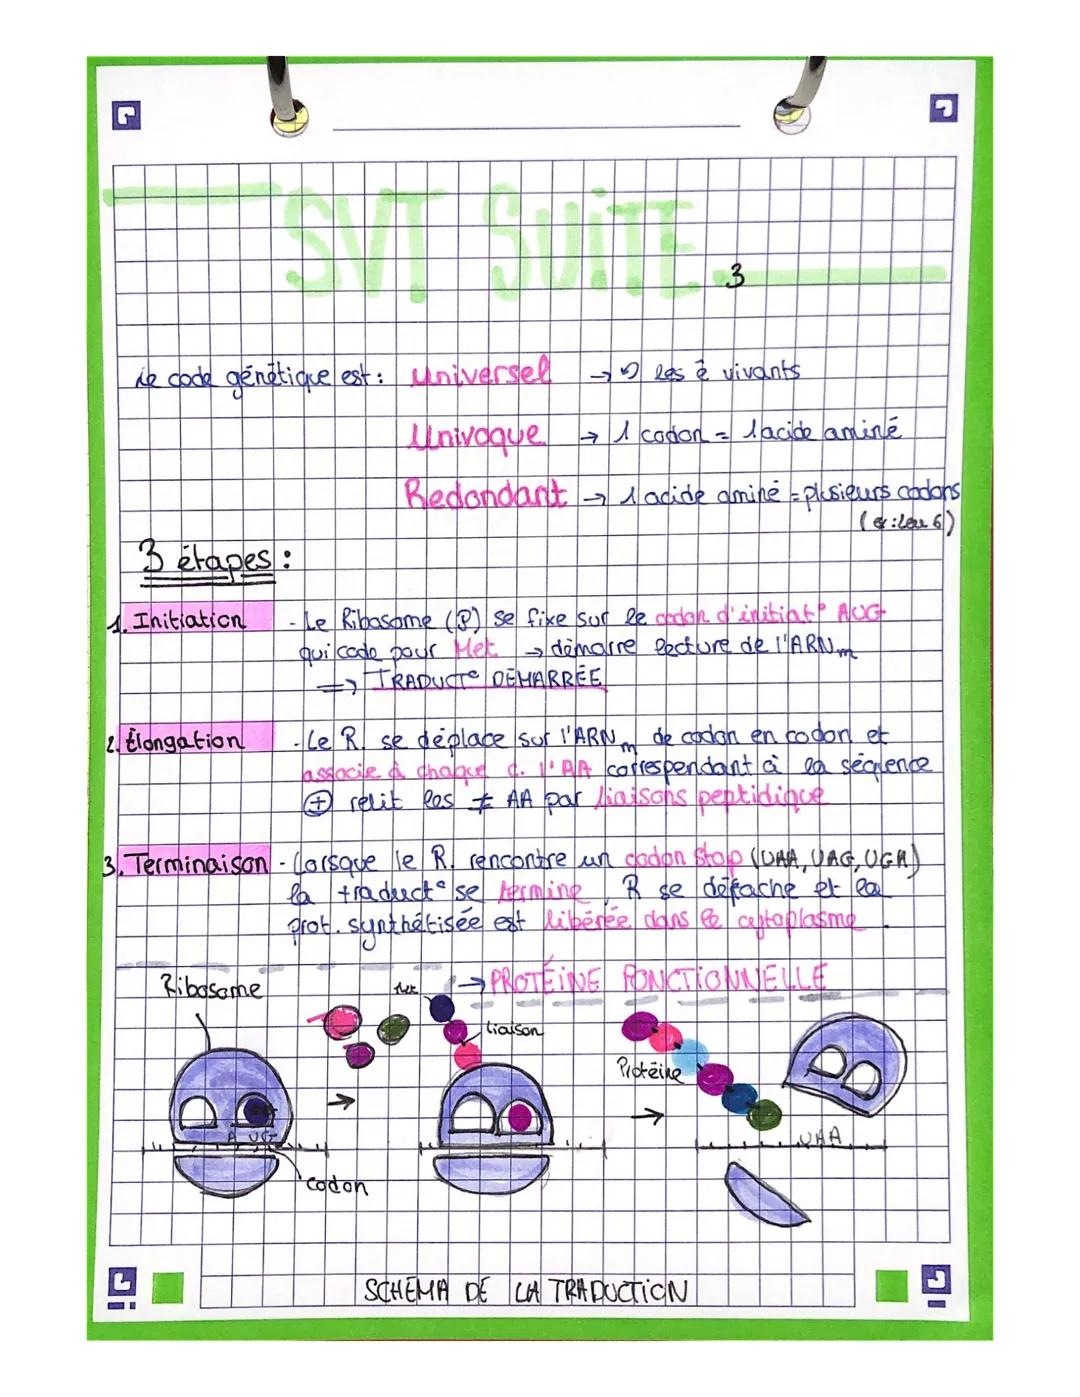 SVT SUiTE
3
Le code génétique est : universel → ວ les ê vivants
Univoque → 1 codon = 1 acide aminé
Redondant → 1 acide aminé = plusieurs codons
(ex : Leu 6)
3 étapes :
1. Initiation - Le Ribosome (R) se fixe sur le codon d'initiat° AUG
qui code pour Met → démarre lecture de l'ARNm
=> TRADUCT° DÉMARRÉE
2. Élongation - Le R. se déplace sur l'ARNm de codon en codon et
associe à chaque c. l'AA correspondant à la séquence
⊕ relit les ≠ AA par liaisons peptidique
3. Terminaison - Lorsque le R. rencontre un codon stop (UAA, UAG, UGA)
la traduct° se termine, R se détache et la
prot. synthétisée est libérée dans le cytoplasme.
→ PROTÉiNE FONCTiONNELLE
Ribosome
Met
liaison
Protéine
AUG
UAA
codon
SCHÉMA DE LA TRADUCTiON